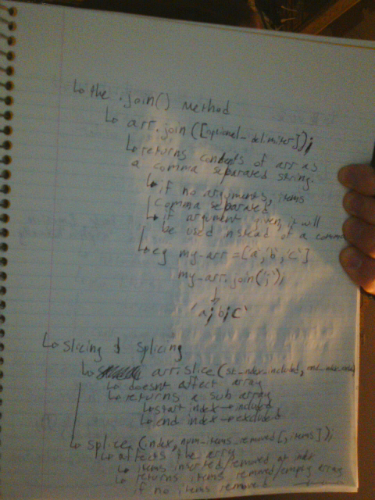 ↳ the .join() method
↳ arr.join([optional_delimiter]);
↳ returns contents of arr as
a comma separated string.
↳ if no arguments, items
comma separated
↳ if argument given, it will
be used instead of a comma
↳ eg my-arr = ['a','b','c']
my-arr.join(';');
'a;b;c'
↳ slicing & splicing
↳ arr.slice(
↳ doesn't affect array
↳ returns a sub array
↳ start index → included
↳ end index → excluded
↳ splice (index, removed[,items]);
↳ affects the array
↳ items inserted/removed at index
↳ returns items removed/empty array
if no items removed